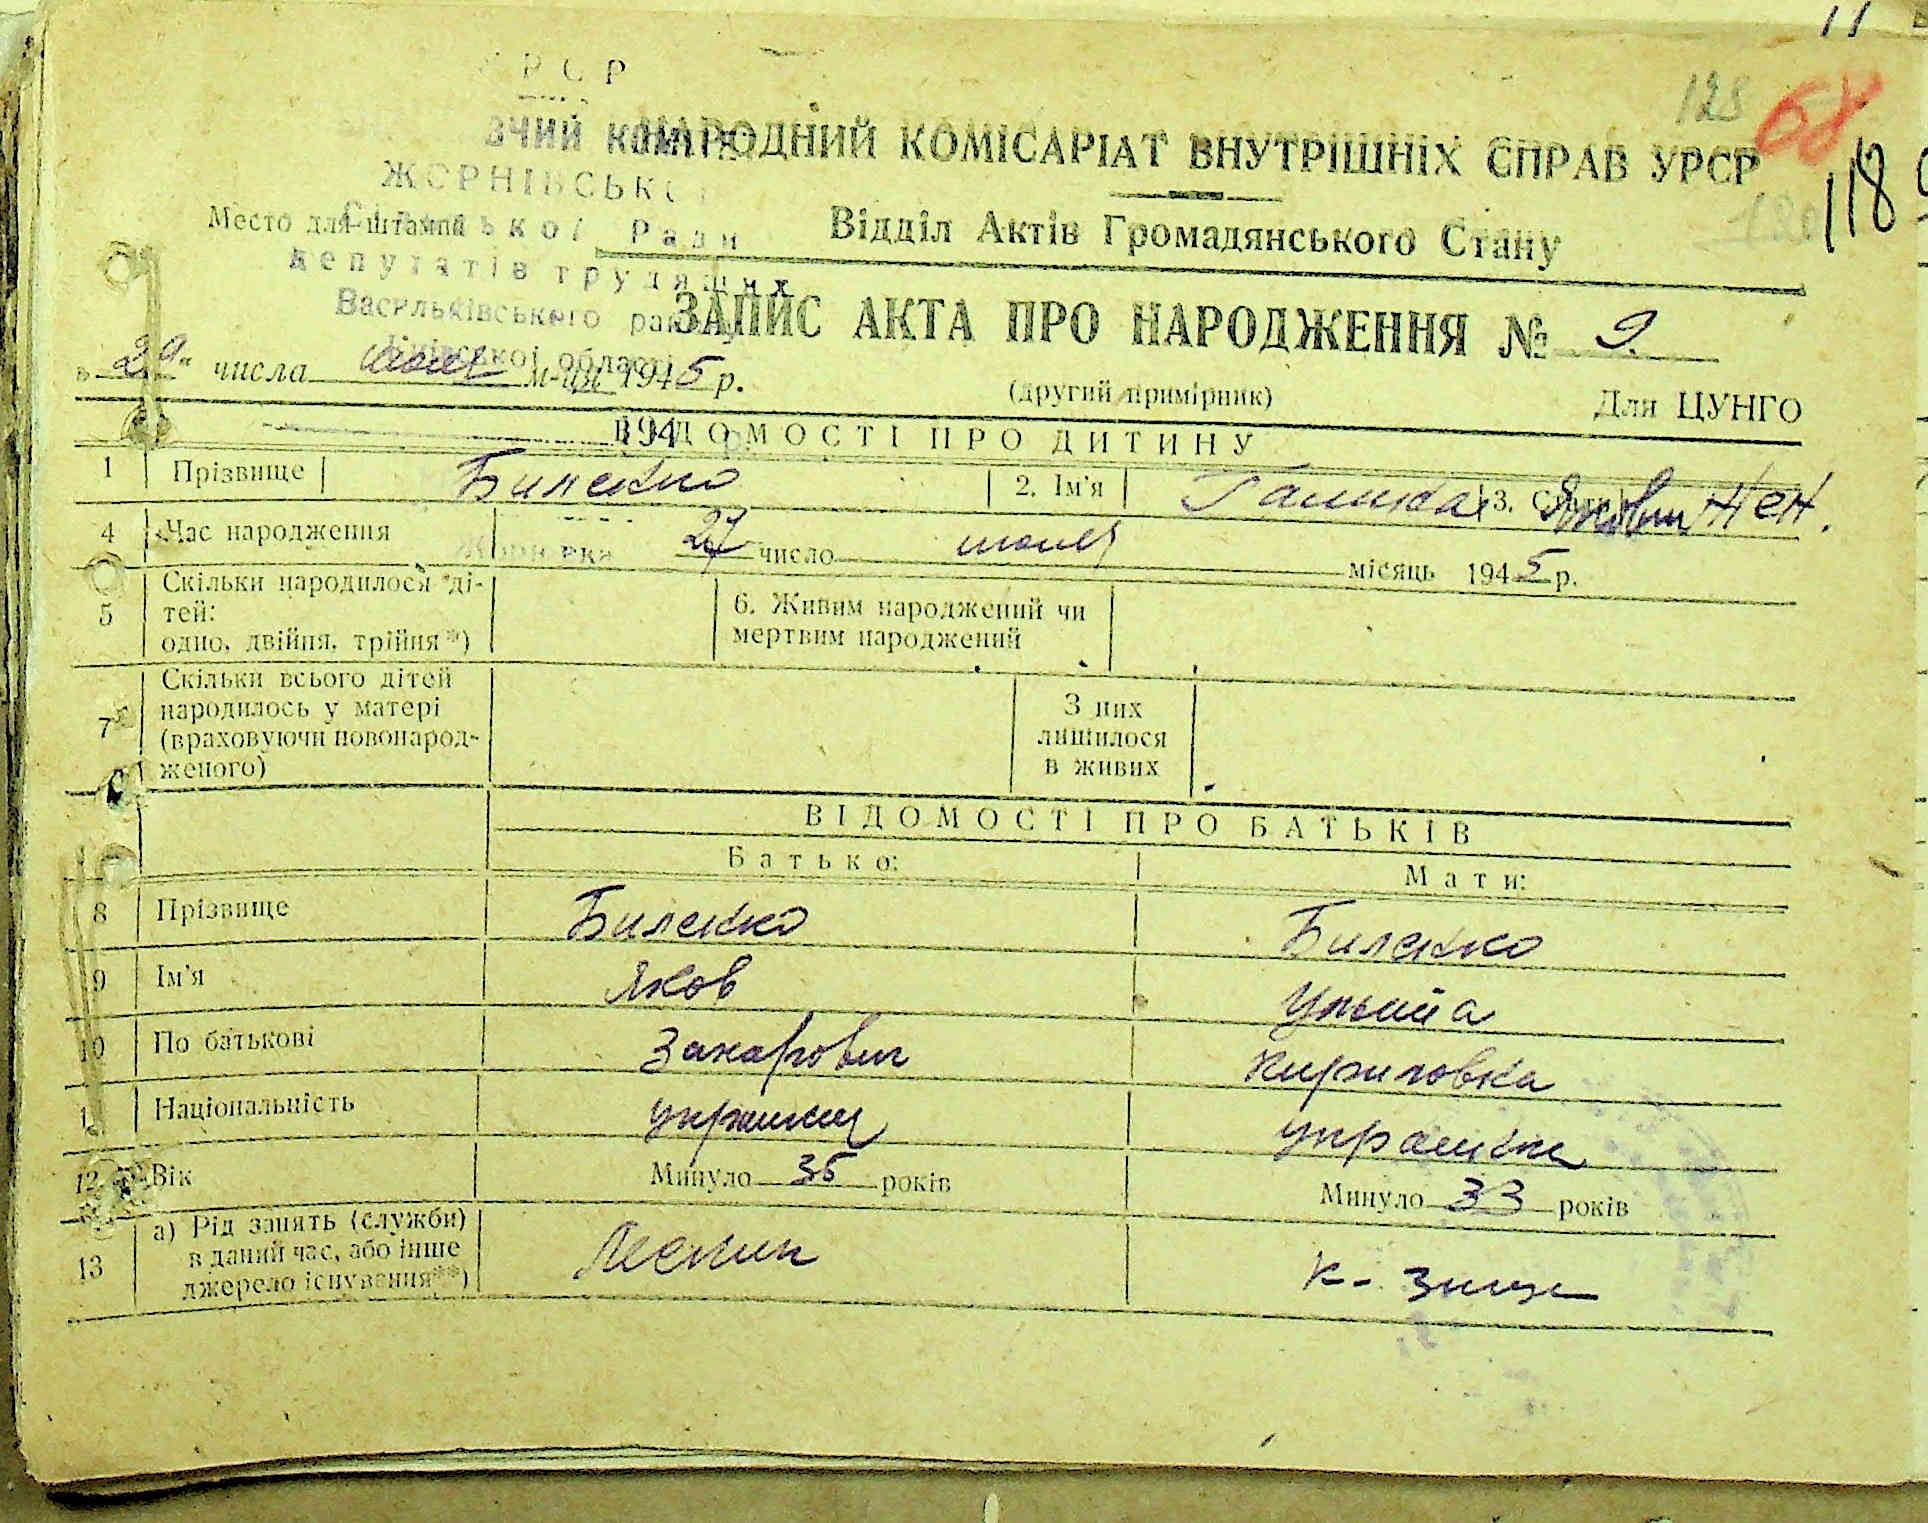 11
РСР
128 68
вчий комітет
НАРОДНИЙ КОМІСАРІАТ ВНУТРІШНІХ СПРАВ УРСР
118
ЖОРНІВСЬКОЇ
Место для штампа
Сільської Ради
Відділ Актів Громадянського Стану
депутатів трудящих
Васильківського району
ЗАПИС АКТА ПРО НАРОДЖЕННЯ № 9.
Київської області
„29“ числа июля м-ця 1945 р.
(другий примірник)
Для ЦУНГО
194 р.
ВІДОМОСТІ ПРО ДИТИНУ
1 Прізвище Биленко 2. Ім'я Галина Яковл 3. Стать жен.
4 Час народження 27 число июля місяць 1945 р.
Жорнівка
5 Скільки народилося ді-
тей:
одно, двійня, трійня*)
6. Живим народжений чи
мертвим народжений
7 Скільки всього дітей
народилось у матері
(враховуючи новонарод-
женого)
З них
лишилося
в живих
ВІДОМОСТІ ПРО БАТЬКІВ
Батько: Мати:
8 Прізвище Биленко Биленко
9 Ім'я Яков Ульяна
10 По батькові Захарович Кириловна
11 Національність украинец украинка
12 Вік Минуло 35 років Минуло 33 років
13 а) Рід занять (служби)
в даний час, або інше
джерело існування**)
Лесник к-зница